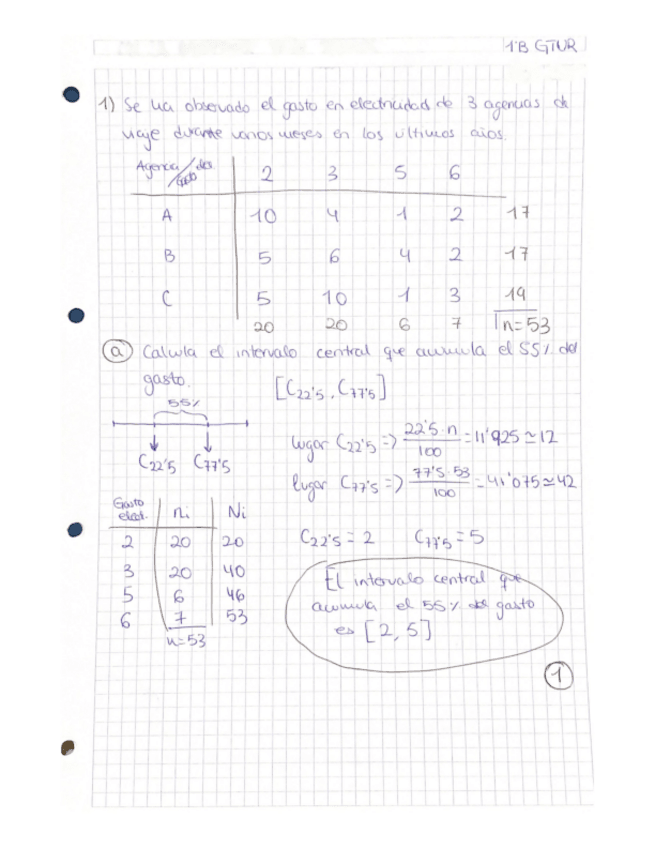 1ºB GTUR
1) Se ha observado el gasto en electricidad de 3 agencias de
viaje durante varios meses en los últimos años.
Agencia / gasto elec. 2 3 5 6
A 10 4 1 2 17
B 5 6 4 2 17
C 5 10 1 3 19
20 20 6 7 n=53
a) Calcula el intervalo central que acumula el 55% del
gasto. [C22'5, C77'5]
55%
C22'5 C77'5
lugar C22'5 => 22'5·n / 100 = 11'925 ≃ 12
lugar C77'5 => 77'5·53 / 100 = 41'075 ≃ 42
Gasto elect. ni Ni
2 20 20
3 20 40
5 6 46
6 7 53
n=53
C22'5 = 2 C77'5 = 5
El intervalo central que
acumula el 55% del gasto
es [2, 5]
1